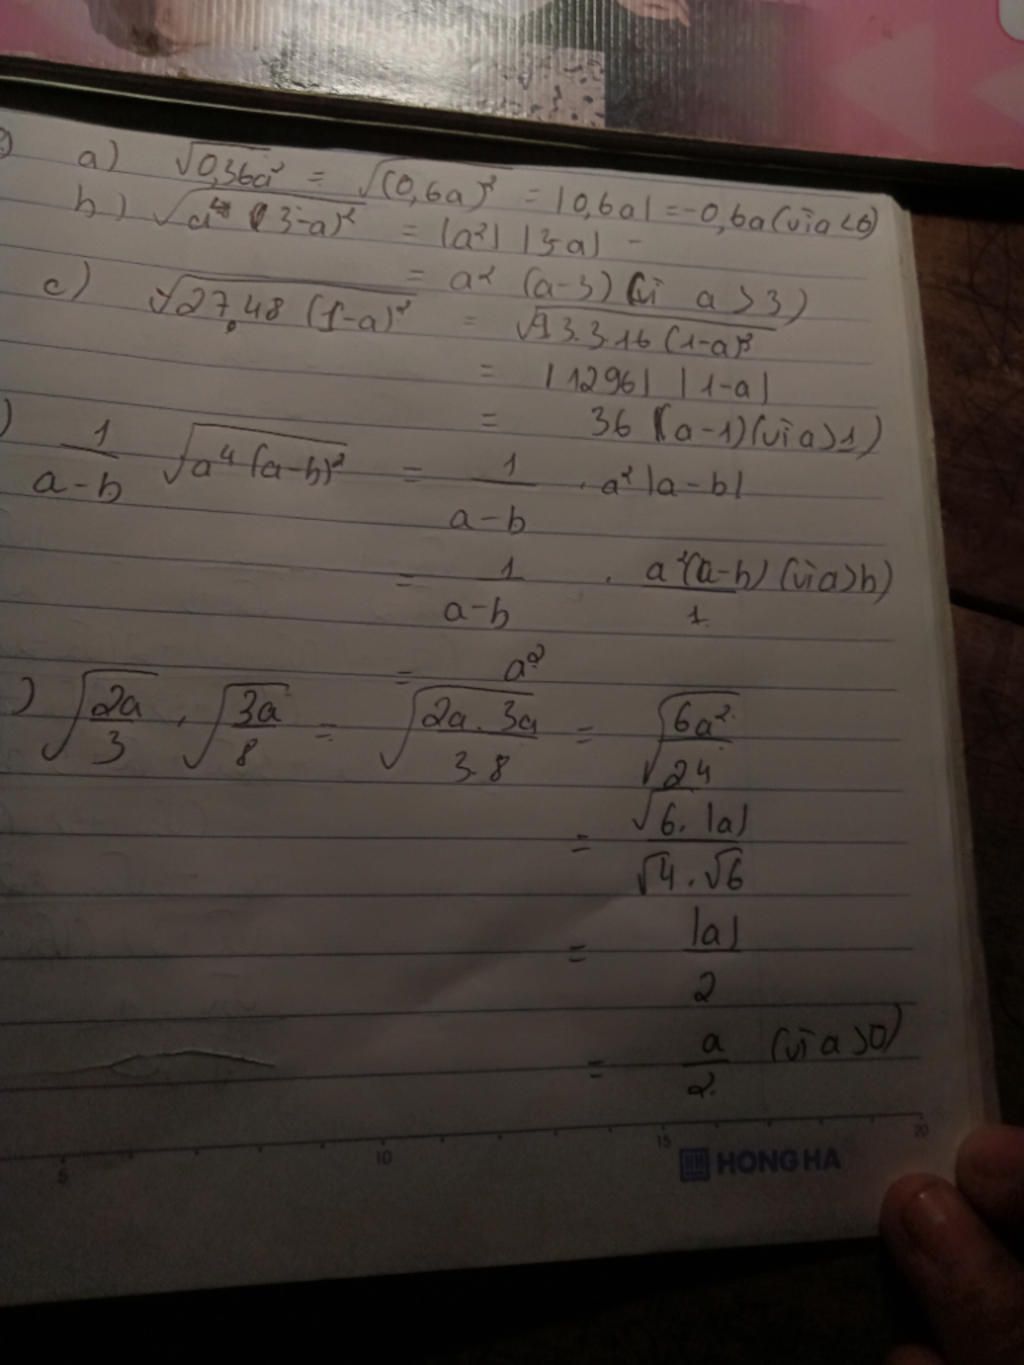 a) √0,36a² = √(0,6a)² = |0,6a| = -0,6a (vì a<0)
b) √a⁴ (3-a)² = |a²| |3-a| -
= a² (a-3) (vì a > 3)
c) √27.48 (1-a)² = √9.3.3.16 (1-a)²
= |1296| |1-a|
= 36 (a-1) (vì a>1)
) 1/(a-b) √a⁴(a-b)² = 1/(a-b) . a²|a-b|
= 1/(a-b) . a²(a-b)/1 (vì a>b)
= a²
) √(2a/3) . √(3a/8) = √(2a.3a/3.8) = √6a²/√24
= √6.|a|/√4.√6
= |a|/2
= a/2 (vì a>0)
5 10 15 20
HONG HA